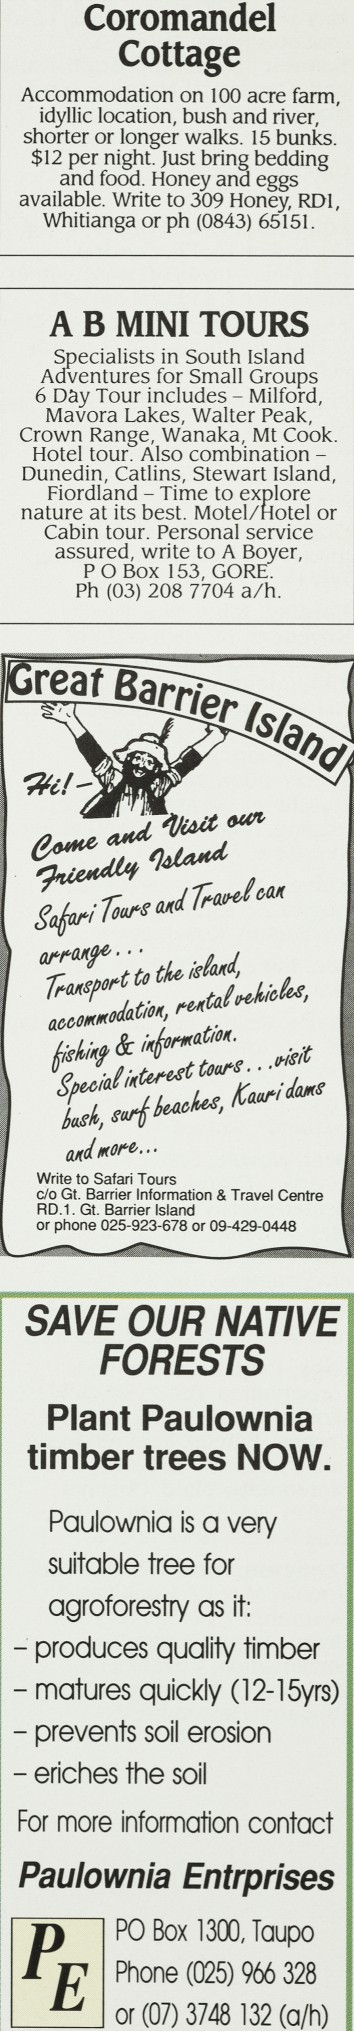 Coromandel
Cottage
Accommodation on 100 acre farm,
idyllic location, bush and river,
shorter or longer walks. 15 bunks.
$12 per night. Just bring bedding
and food. Honey and eggs
available. Write to 309 Honey, RD1,
Whitianga or ph (0843) 65151.
A B MINI TOURS
Specialists in South Island
Adventures for Small Groups
6 Day Tour includes – Milford,
Mavora Lakes, Walter Peak,
Crown Range, Wanaka, Mt Cook.
Hotel tour. Also combination –
Dunedin, Catlins, Stewart Island,
Fiordland – Time to explore
nature at its best. Motel/Hotel or
Cabin tour. Personal service
assured, write to A Boyer,
P O Box 153, GORE.
Ph (03) 208 7704 a/h.
Great Barrier Island
Hi! –
Come and Visit our
Friendly Island
Safari Tours and Travel can
arrange . . .
Transport to the island,
accommodation, rental vehicles,
fishing & information.
Special interest tours . . . visit
bush, surf beaches, Kauri dams
and more...
Write to Safari Tours
c/o Gt. Barrier Information & Travel Centre
RD.1. Gt. Barrier Island
or phone 025-923-678 or 09-429-0448
SAVE OUR NATIVE
FORESTS
Plant Paulownia
timber trees NOW.
Paulownia is a very
suitable tree for
agroforestry as it:
– produces quality timber
– matures quickly (12-15yrs)
– prevents soil erosion
– eriches the soil
For more information contact
Paulownia Entrprises
PE
PO Box 1300, Taupo
Phone (025) 966 328
or (07) 3748 132 (a/h)